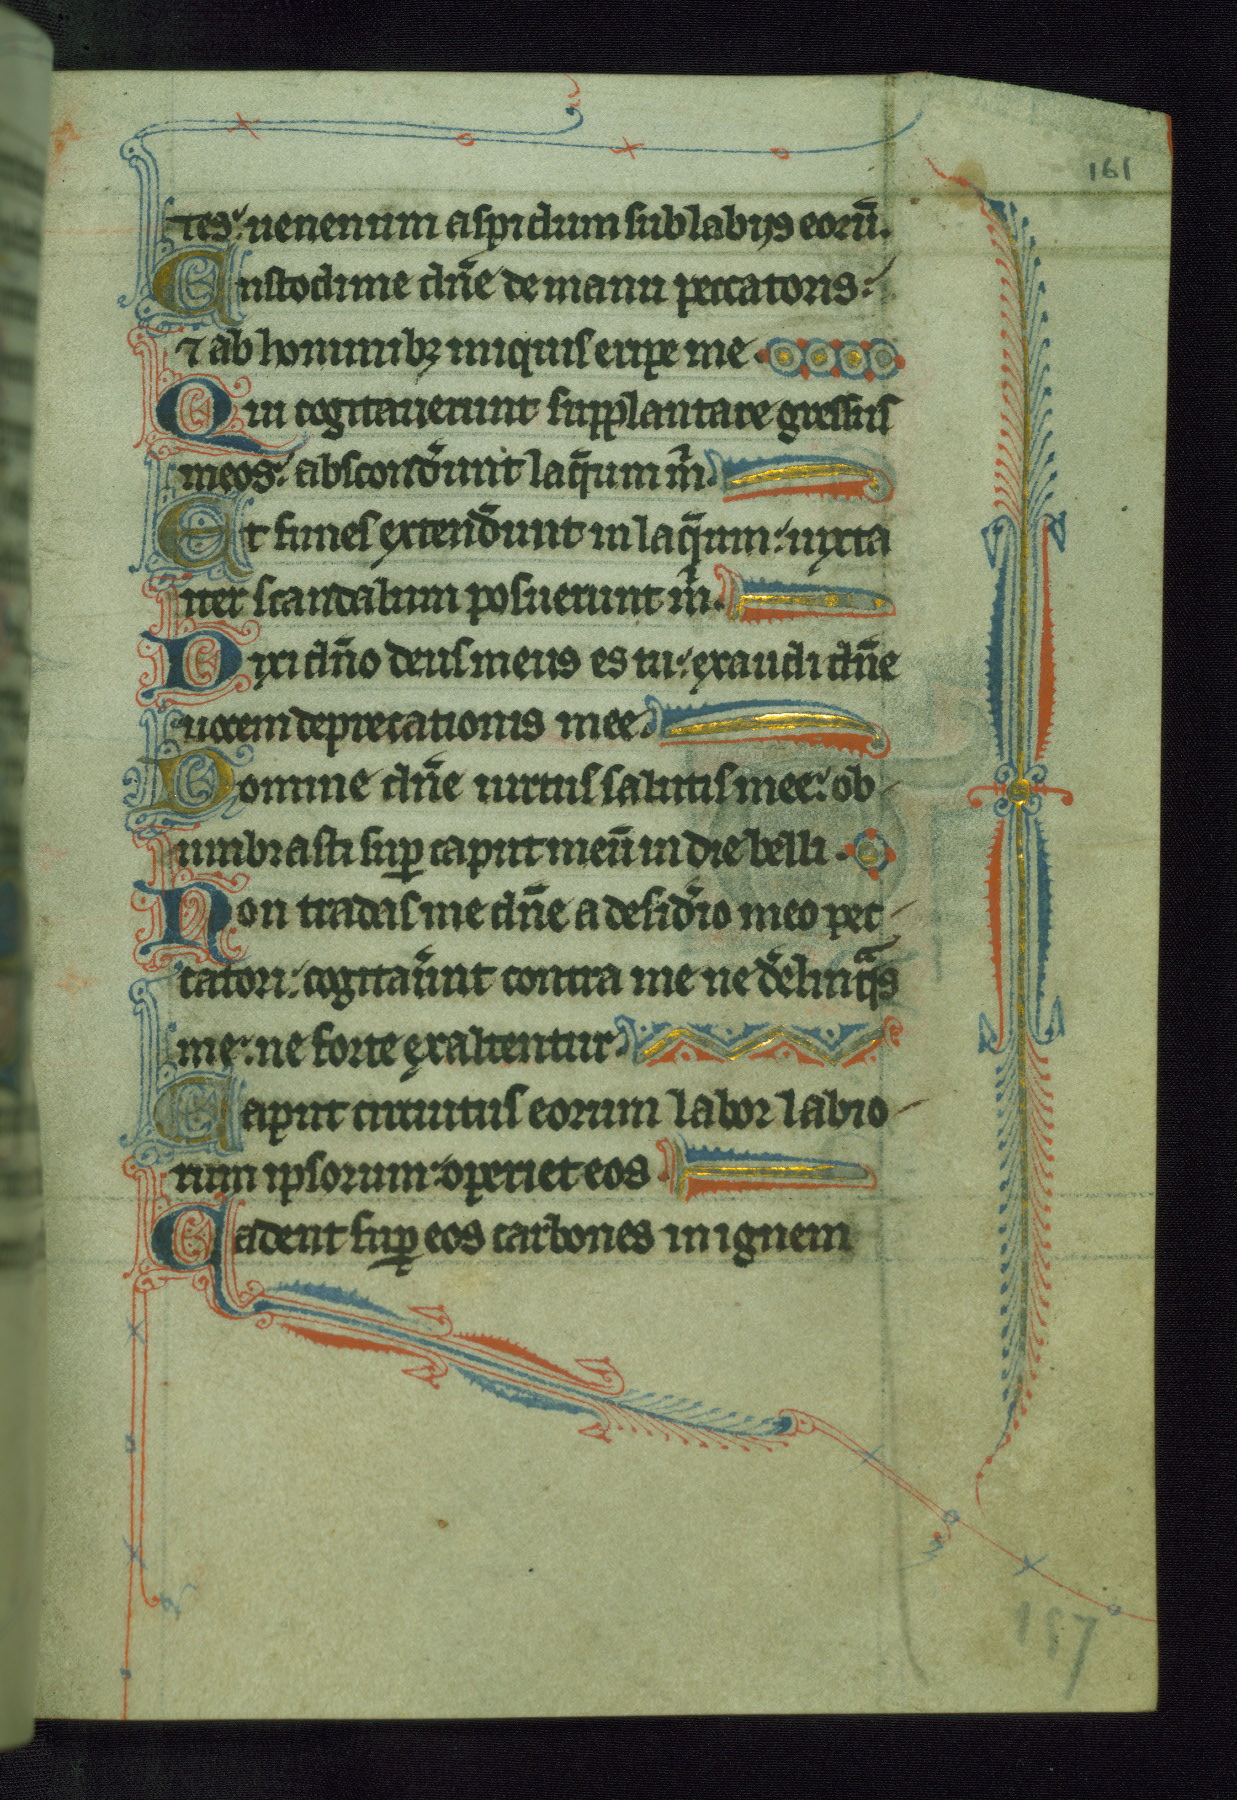 161
tes: uenenum aspidum sub labijs eorū.
Custodi me dn̄e de manu peccatoris:
⁊ ab hominibꝫ iniquis eripe me.
Qui cogitauerunt supplantare gressus
meos: abscond̄unt laq̄um m̄.
Et funes extend̄unt in laq̄um: iuxta
iter scandalum posuerunt m̄.
Dixi dn̄o deus meus es tu: exaudi dn̄e
uocem deprecationis mee.
Domine dn̄e uirtus salutis mee: ob
umbrasti suꝑ caput meū in die belli.
Non tradas me dn̄e a desid̄io meo pec
catori: cogitau̅nt contra me ne d̄elinq̄s
me: ne forte exaltentur.
Caput circuitus eorum labor labio
rum ipsorum: operiet eos.
Cadent suꝑ eos carbones in ignem